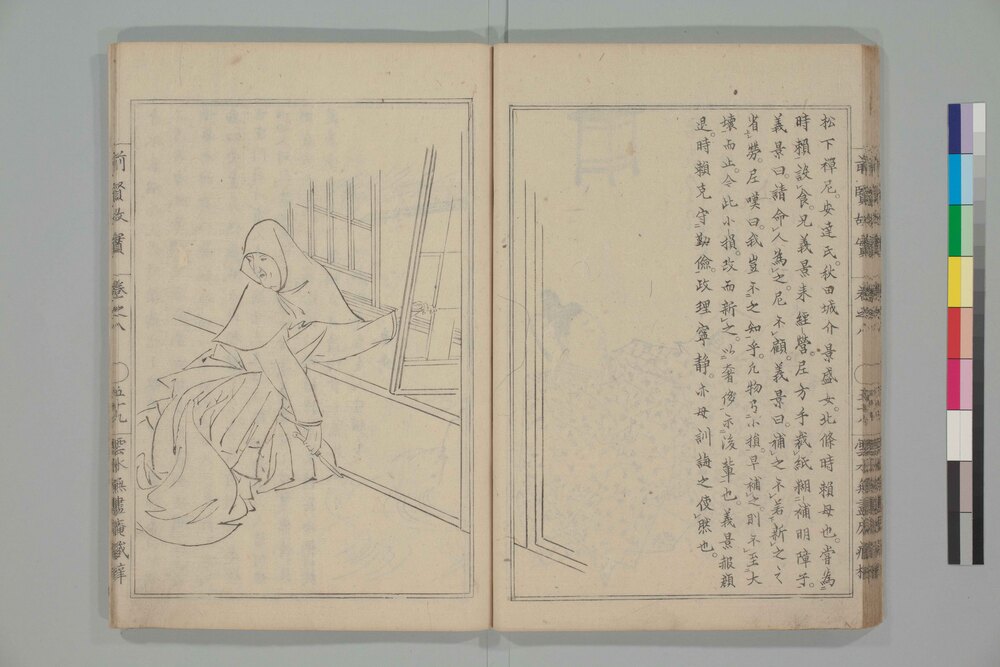 松下禪尼。安達氏。秋田城介景盛女。北條時頼母也。嘗為
時頼設食。兄義景来經營。尼方手裁紙糊補明障子。
義景曰。請命人為之。尼不顧。義景曰。補之不若新之之
省勞。尼嘆曰。我豈不之知乎。凡物有小損。早補之。則不至大
壊而止。令此小損。改而新之。以奢侈示後輩也。義景赧顔
是。時頼克守勤儉。政理寧静。亦母訓誨之使然也。
前賢故實
巻之八
五十九
雲水無盡庵藏梓